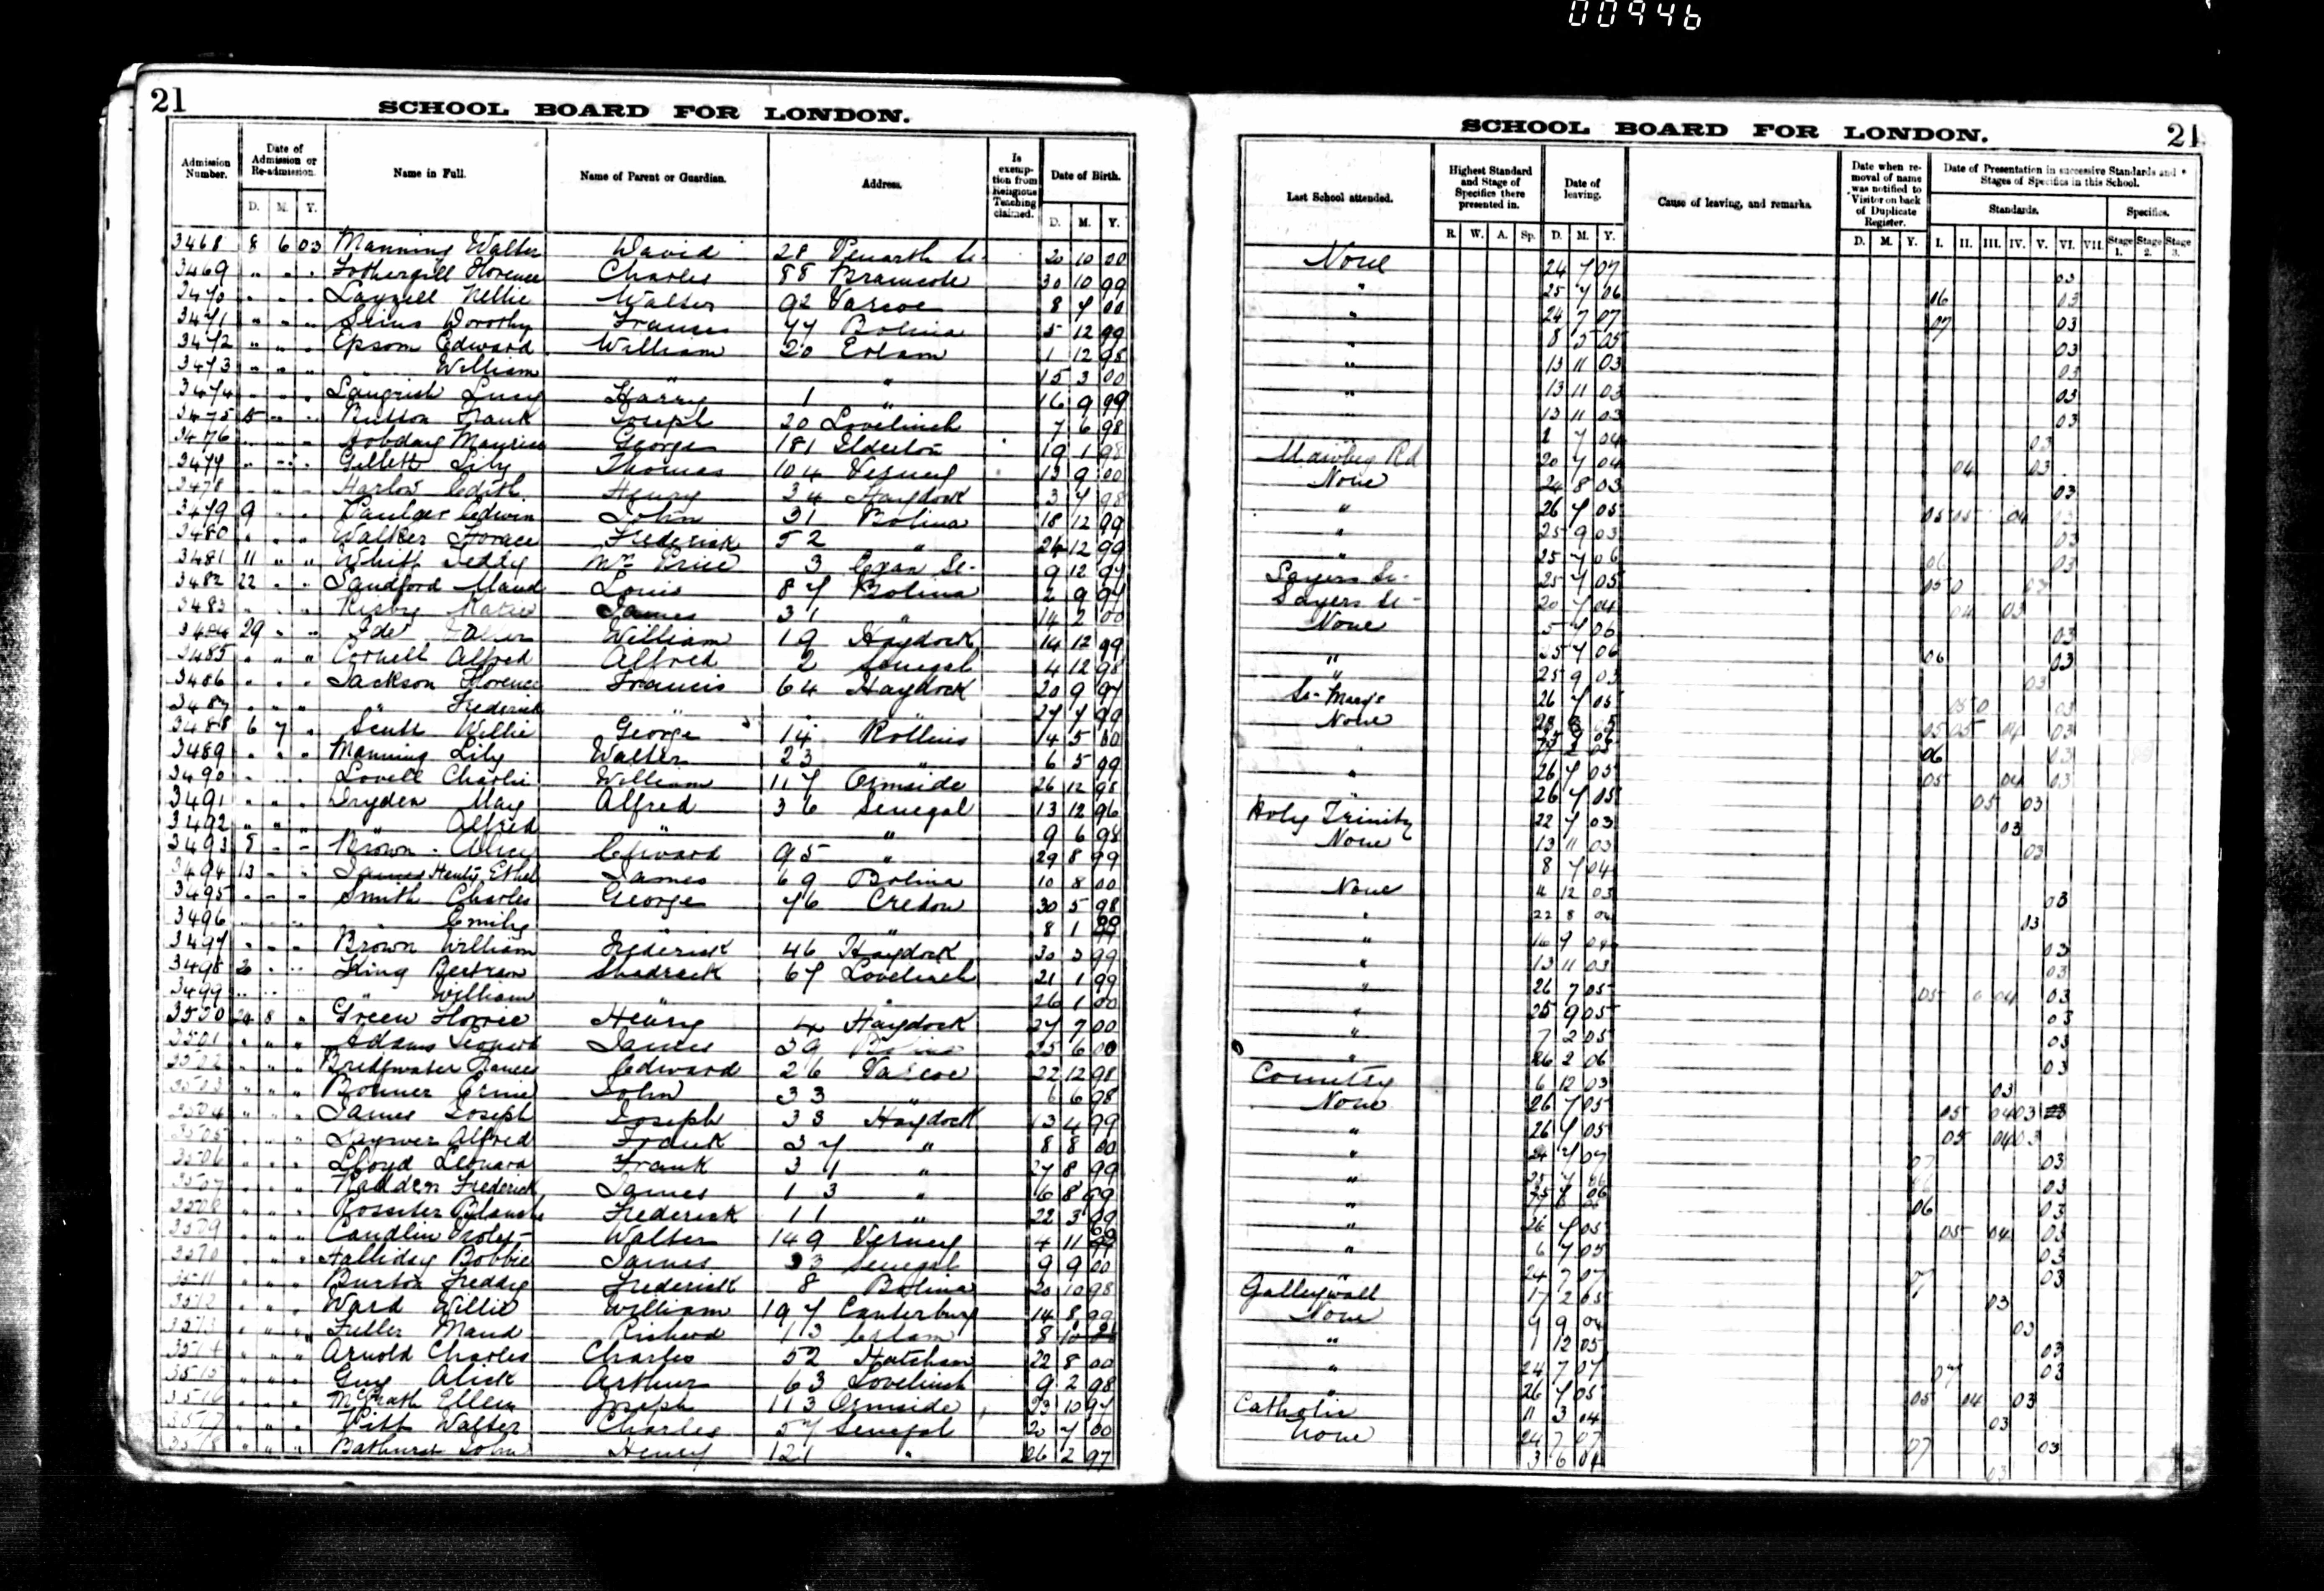 00946
21
SCHOOL BOARD FOR LONDON.
Admission Number. Date of Admission or Re-admission. Name in Full. Name of Parent or Guardian. Address. Is exemption from Religious Teaching claimed. Date of Birth.
D. M. Y. D. M. Y.
3468 8 6 03 Manning Walter David 28 Penarth St- 20 10 00
3469 " " " Fothergill Florence Charles 88 Bramcote 30 10 99
3470 " " " Layzell Nellie Walter 92 Varcoe 8 7 00
3471 " " " Dorothy Frances 77 Bolina 5 12 99
3472 " " " Epsom Edward William 20 Erlam 1 12 98
3473 " " " " William " " 15 3 00
3474 " " " Langrish Lucy Harry 1 " 16 9 99
3475 15 " " Frank Joseph 20 Lovelinch 7 6 98
3476 " " " Hobday Maurice George 181 Ilderton 19 1 98
3477 " " " Gillett Lily Thomas 104 Verney 13 9 00
3478 " " " Harlow Edith Henry 34 Haydock 3 7 98
3479 9 " " Edwin John 31 Bolina 18 12 99
3480 " " " Walker Horace Frederick 52 " 26 12 99
3481 11 " " Teddy Mrs Price 3 St- 9 12 97
3482 22 " " Sandford Maud Louis 87 Bolina 2 9 97
3483 " " " Risby Katie James 31 " 14 2 00
3484 29 " " Ide William 19 Haydock 14 12 99
3485 " " " Cornell Alfred Alfred 2 Senegal 4 12 98
3486 " " " Jackson Florence Francis 64 Haydock 20 9 97
3487 " " " " Frederick " " 27 7 99
3488 6 7 " Scutt Willie George 14 Rollins 14 5 00
3489 " " " Manning Lily Walter 23 " 6 5 99
3490 " " " Lovell Charlie William 117 Ormside 26 12 98
3491 " " " Dryden May Alfred 36 Senegal 13 12 96
3492 " " " " Alfred " " 9 6 98
3493 " " Brown Edward 95 " 29 8 99
3494 13 " " James Henty Ethel James 69 Bolina 10 8 00
3495 " " " Smith Charles George 76 Credon 30 5 98
3496 " " " " Emily " " 8 1
3497 " " " Brown William Frederick 46 Haydock 30 3 99
3498 " " King Bertram Shadrack 67 Lovelinch 21 1 99
3499 " " " " William " " 26 1 00
3500 24 8 " Green Florrie Henry 4 Haydock 27 7 00
3501 " " " Adams Leonard James 39 Bolina 25 6 00
3502 " " " Bridgwater Edward 26 Varcoe 22 12 98
3503 " " " Bonner Ernie John 33 " 6 6 98
3504 " " " James Joseph Joseph 33 Haydock 13 4 99
3505 " " " Alfred Frank 37 " 8 8 00
3506 " " " Lloyd Leonard Frank 31 " 27 8 99
3507 " " " Frederick James 13 " 6 8 99
3508 " " " Rossiter Blanche Frederick 11 " 22 3 99
3509 " " " Candlin Walter 149 Verney 4 11
3510 " " " Halliday Bobbie James 33 Senegal 9 9 00
3511 " " " Burton Freddy Frederick 8 Bolina 20 10 98
3512 " " " Ward Willie William 197 Canterbury 14 8 99
3513 " " " Fuller Maud Richard 13 Erlam 8 10
3514 " " " Arnold Charles Charles 52 Hatcham 22 8 00
3515 " " " Guy Alick Arthur 63 Lovelinch 9 2 98
3516 " " " McGrath Ellen Joseph 113 Ormside 23 10 97
3517 " " " Pitt Walter Charles 57 Senegal 20 7 00
3518 " " " Bathurst John Henry 121 " 26 2 97
21
SCHOOL BOARD FOR LONDON.
Last School attended. Highest Standard and Stage of Specifics there presented in. Date of leaving. Cause of leaving, and remarks. Date when removal of name was notified to Visitor on back of Duplicate Register. Date of Presentation in successive Standards and Stages of Specifics in this School.
Standards. Specifics.
R. W. A. Sp. D. M. Y. D. M. Y. I. II. III. IV. V. VI. VII. Stage 1. Stage 2. Stage 3.
None 24 7 07 03
" 25 7 06 06 03
" 24 7 07 07 03
" 8 3 05 03
" 13 11 03 03
" 13 11 03 03
" 13 11 03 03
" 7 04 03
Mawbey Rd 20 7 04 04 03
None 24 8 03 03
" 26 7 05 05 05 04 03
" 25 9 03 03
" 25 7 06 06 03
Sayers St- 25 7 05 05 03
Sayers St- 20 7 04 04 03
None 5 7 06 03
" 25 7 06 06 03
" 25 9 03 03
St- Mary's 26 7 05 05 03
None 05 05 04 03
" 06 03
" 26 7 05 05 04 03
" 26 7 05 05 03
Holy Trinity 22 7 03 03
None 13 11 03 03
8 7 04
None 11 12 03 03
" 22 8 04 03
" 03
" 13 11 03 03
" 26 7 05 05 04 03
" 25 9 05 03
" 7 2 05 03
" 26 2 06 03
Country 6 12 03 03
None 26 7 05 05 04 03
" 26 7 05 05 04 03
" 24 7 07 07 03
" 03
" 06 03
" 26 7 05 05 04 03
" 6 7 05 03
" 24 7 07 07 03
Galleywall 17 2 05 03
None 9 9 04 03
" 1 12 05 03
" 24 7 07 07 03
" 26 7 05 05 04 03
Catholic 11 3 04 03
None 24 7 07 07 03
3 6 04 03